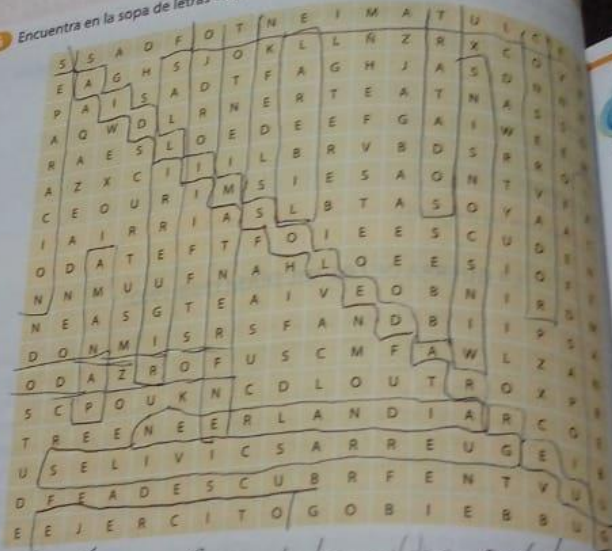 Encuentra en la sopa de
S S A D F O T N E I M A T U I C
E A G H S J O K L L Ñ Z R X C O
P A I S A D T F A G H J A S D N
A Q W D L R N E R T E A T N A S
R A E S L O E D E E F G A I W E
A Z X C I I I L B R V B D S R R
C E O U R I M S I E S A O N T V
I A I R R I A S L B T A S O Y A
O D A T E F T F O I E E S C U D
N N M U U F N A H L O E E S I O
N E A S G T E A I V E O B N I R
D O N M I S R S F A N D B I I P
O D A Z R O F U S C M F A W L Z
S C P O U K N C D L O U T R O X
T R E E N E E R L A N D I A R C O
U S E L I V I C S A R R E U G E I
D F E A D E S C U B R F E N T V U
E E J E R C I T O G O B I E B B U